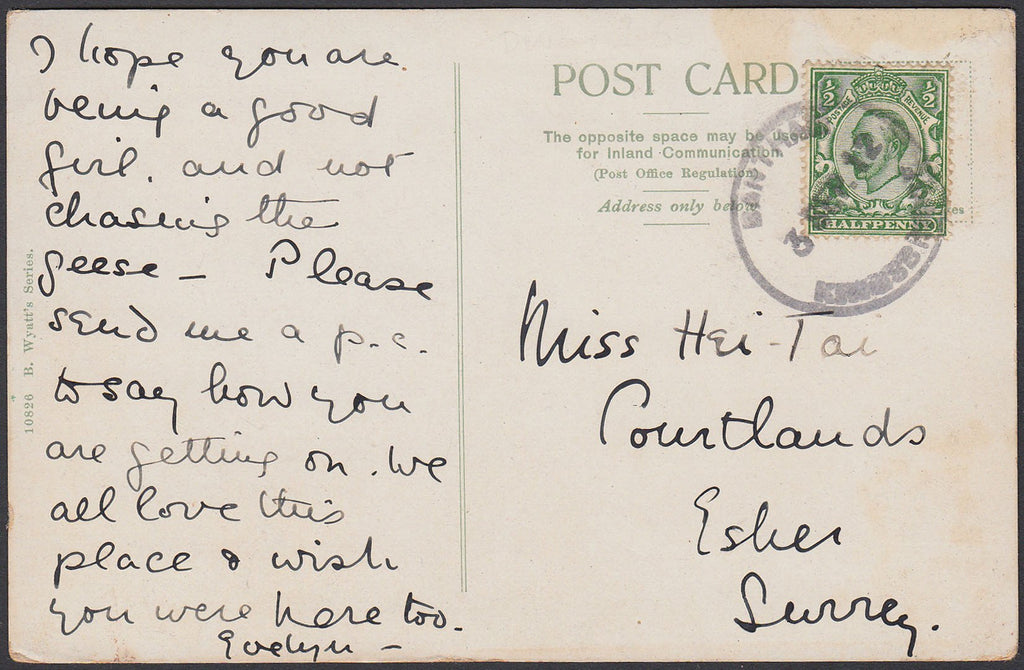 I hope you are
being a good
girl, and not
chasing the
geese — Please
send me a p.c.
to say how you
are getting on. We
all love this
place & wish
you were here too.
Evelyn —
10826 B. Wyatt's Series.
POST CARD
The opposite space may be used
for Inland Communication
(Post Office Regulation)
Address only below
½ ½
POSTAGE REVENUE
HALFPENNY
3 12
KINGSBRIDGE
Miss Hei-Tai
Courtlands
Esher
Surrey.